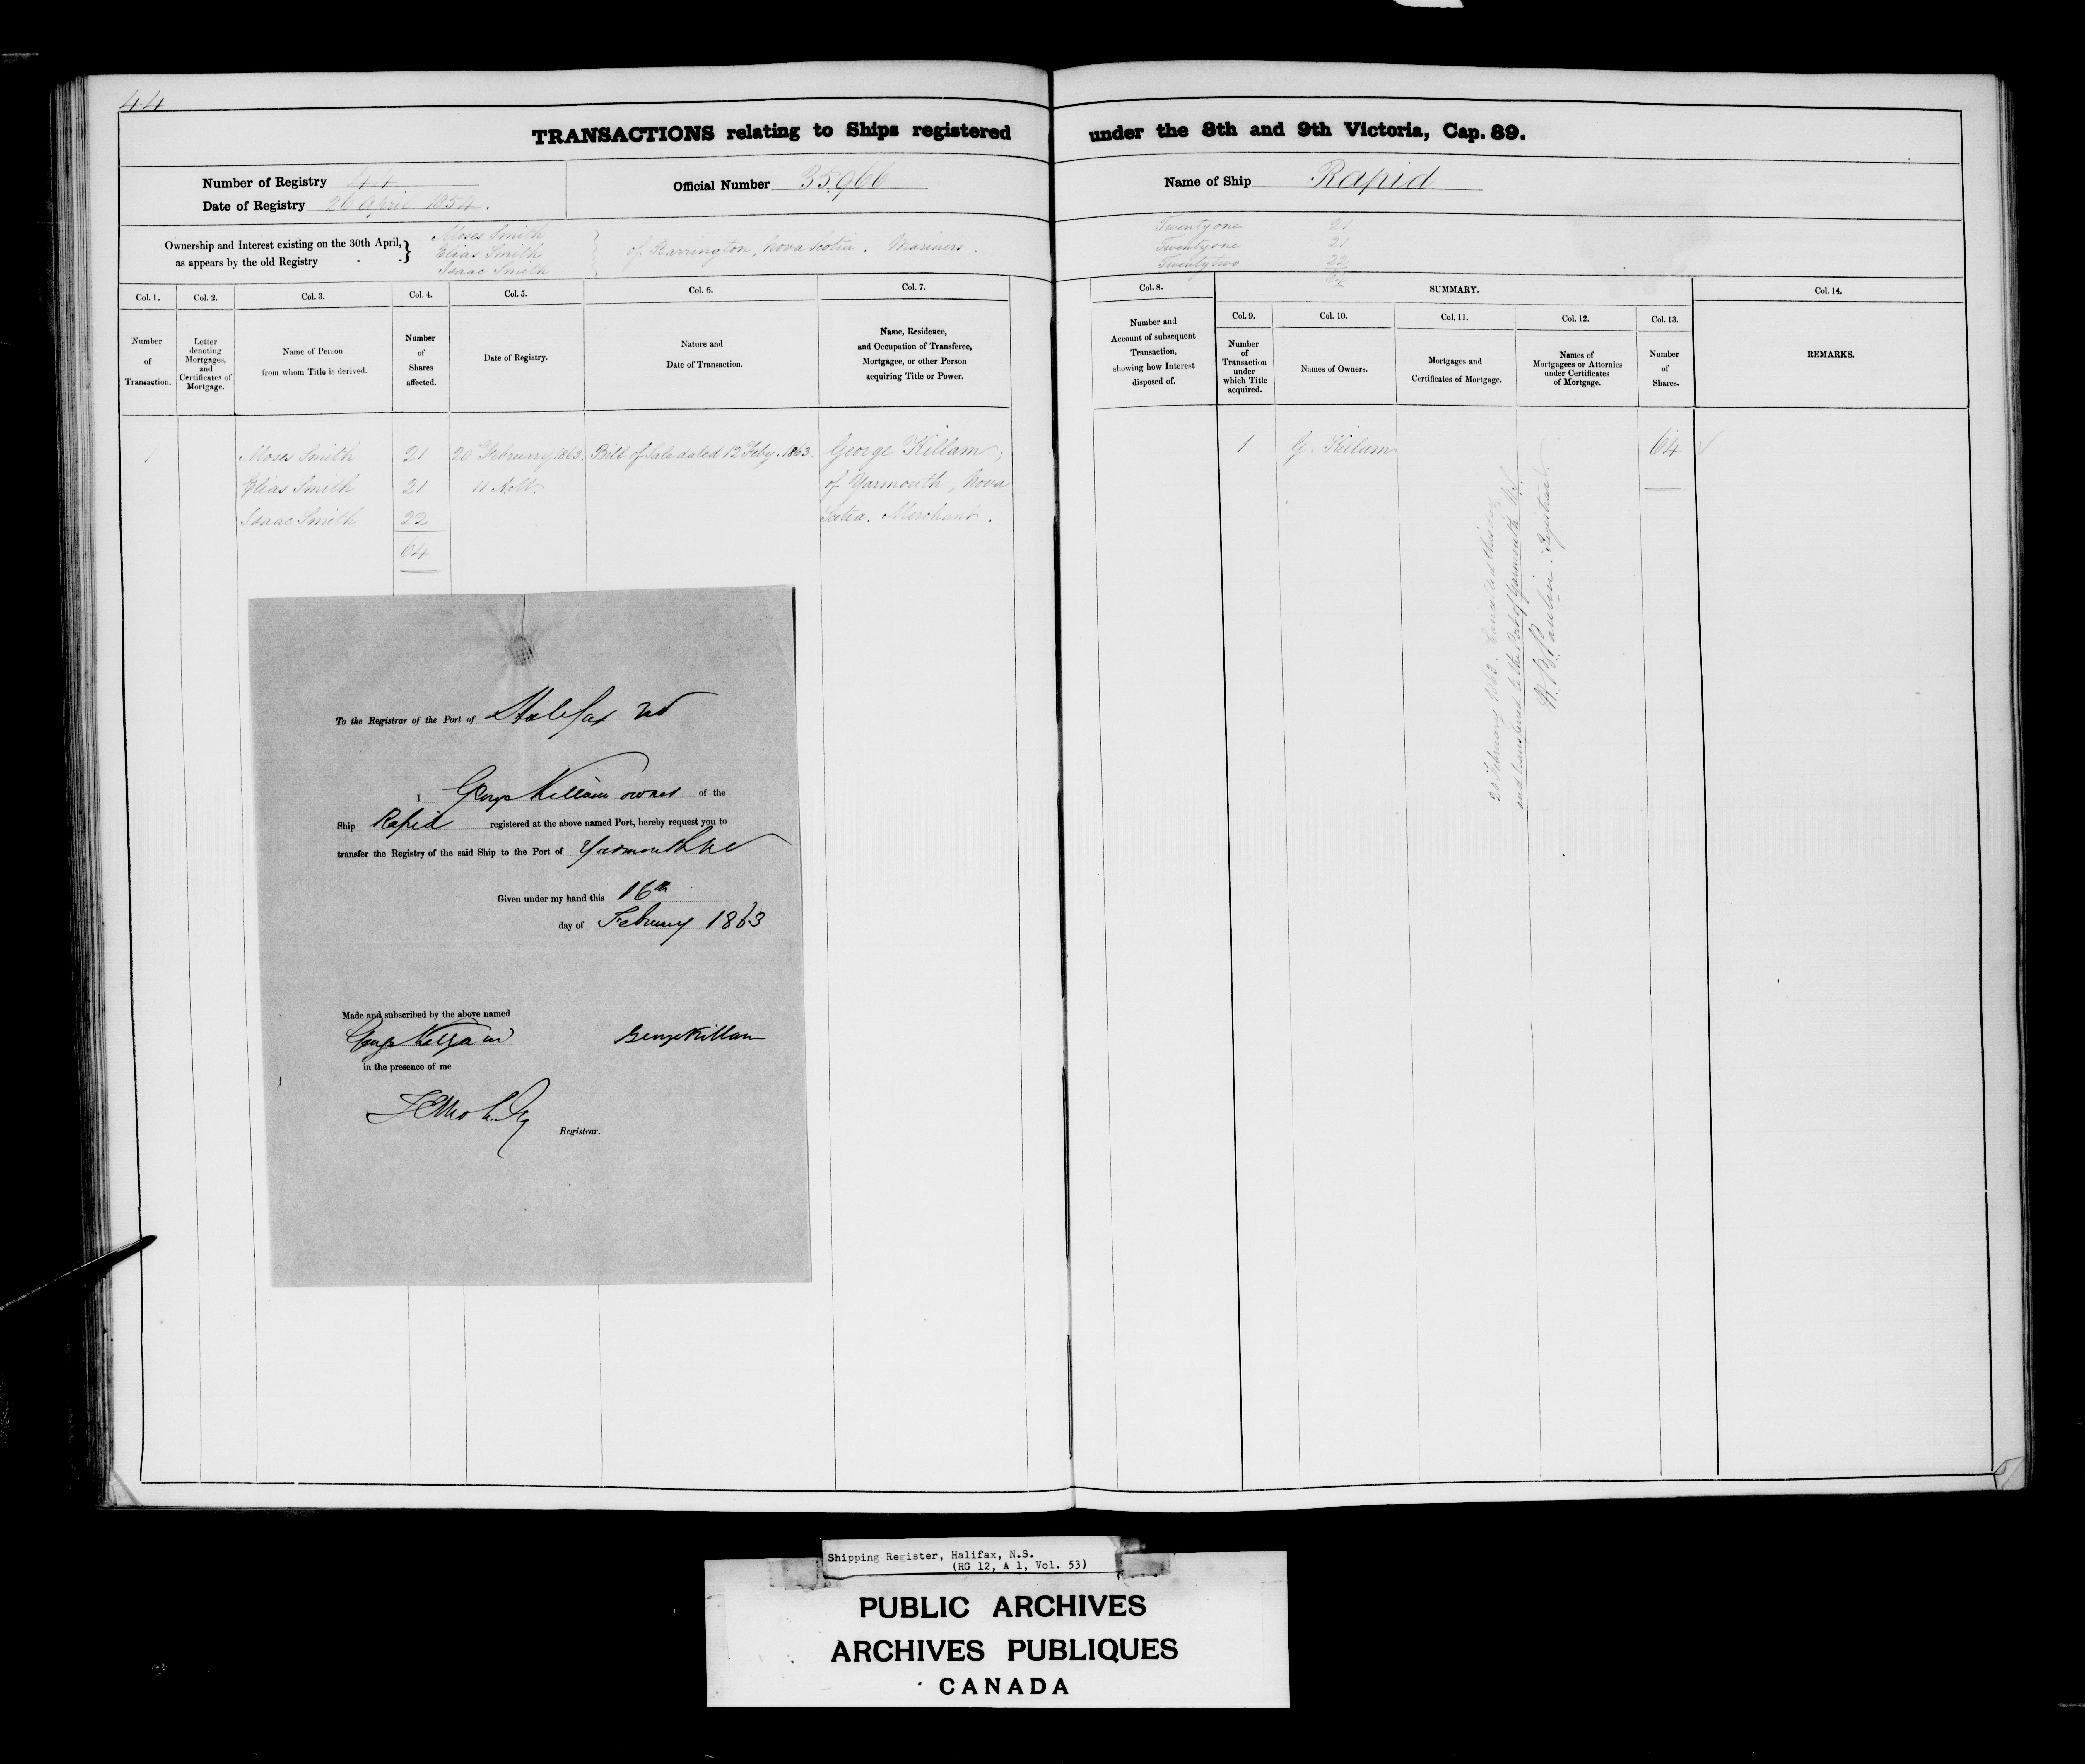 44
TRANSACTIONS relating to Ships registered under the 8th and 9th Victoria, Cap. 89.
Number of Registry 44
Date of Registry 26 April 1854.
Official Number 35,966
Name of Ship Rapid
Ownership and Interest existing on the 30th April, as appears by the old Registry
Moses Smith
Elias Smith
Isaac Smith
of Barrington, Nova Scotia. Mariners.
Twenty one 21
Twenty one 21
Twenty two 22
64
Col. 1.
Number of Transaction.
Col. 2.
Letter denoting Mortgages, and Certificates of Mortgage.
Col. 3.
Name of Person from whom Title is derived.
Col. 4.
Number of Shares affected.
Col. 5.
Date of Registry.
Col. 6.
Nature and Date of Transaction.
Col. 7.
Name, Residence, and Occupation of Transferee, Mortgagee, or other Person acquiring Title or Power.
Col. 8.
Number and Account of subsequent Transaction, showing how Interest disposed of.
SUMMARY.
Col. 9.
Number of Transaction under which Title acquired.
Col. 10.
Names of Owners.
Col. 11.
Mortgages and Certificates of Mortgage.
Col. 12.
Names of Mortgagees or Attornies under Certificates of Mortgage.
Col. 13.
Number of Shares.
Col. 14.
REMARKS.
1 Moses Smith 21 20 February 1863. Bill of Sale dated 12 Feby. 1863. George Killam,
Elias Smith 21 11 of Yarmouth, Nova
Isaac Smith 22 Scotia. Merchant.
64
1 G. Killam 64
20 February 1863. Cancelled this day
and transferred to the Port of Yarmouth N.S.
Registrar.
To the Registrar of the Port of Halifax NS
I George Killam owner of the
Ship Rapid registered at the above named Port, hereby request you to
transfer the Registry of the said Ship to the Port of Yarmouth NS
Given under my hand this 16th
day of February 1863
Made and subscribed by the above named
George Killam
George Killam
in the presence of me
Registrar.
Shipping Register, Halifax, N.S.
(RG 12, A 1, Vol. 53)
PUBLIC ARCHIVES
ARCHIVES PUBLIQUES
CANADA